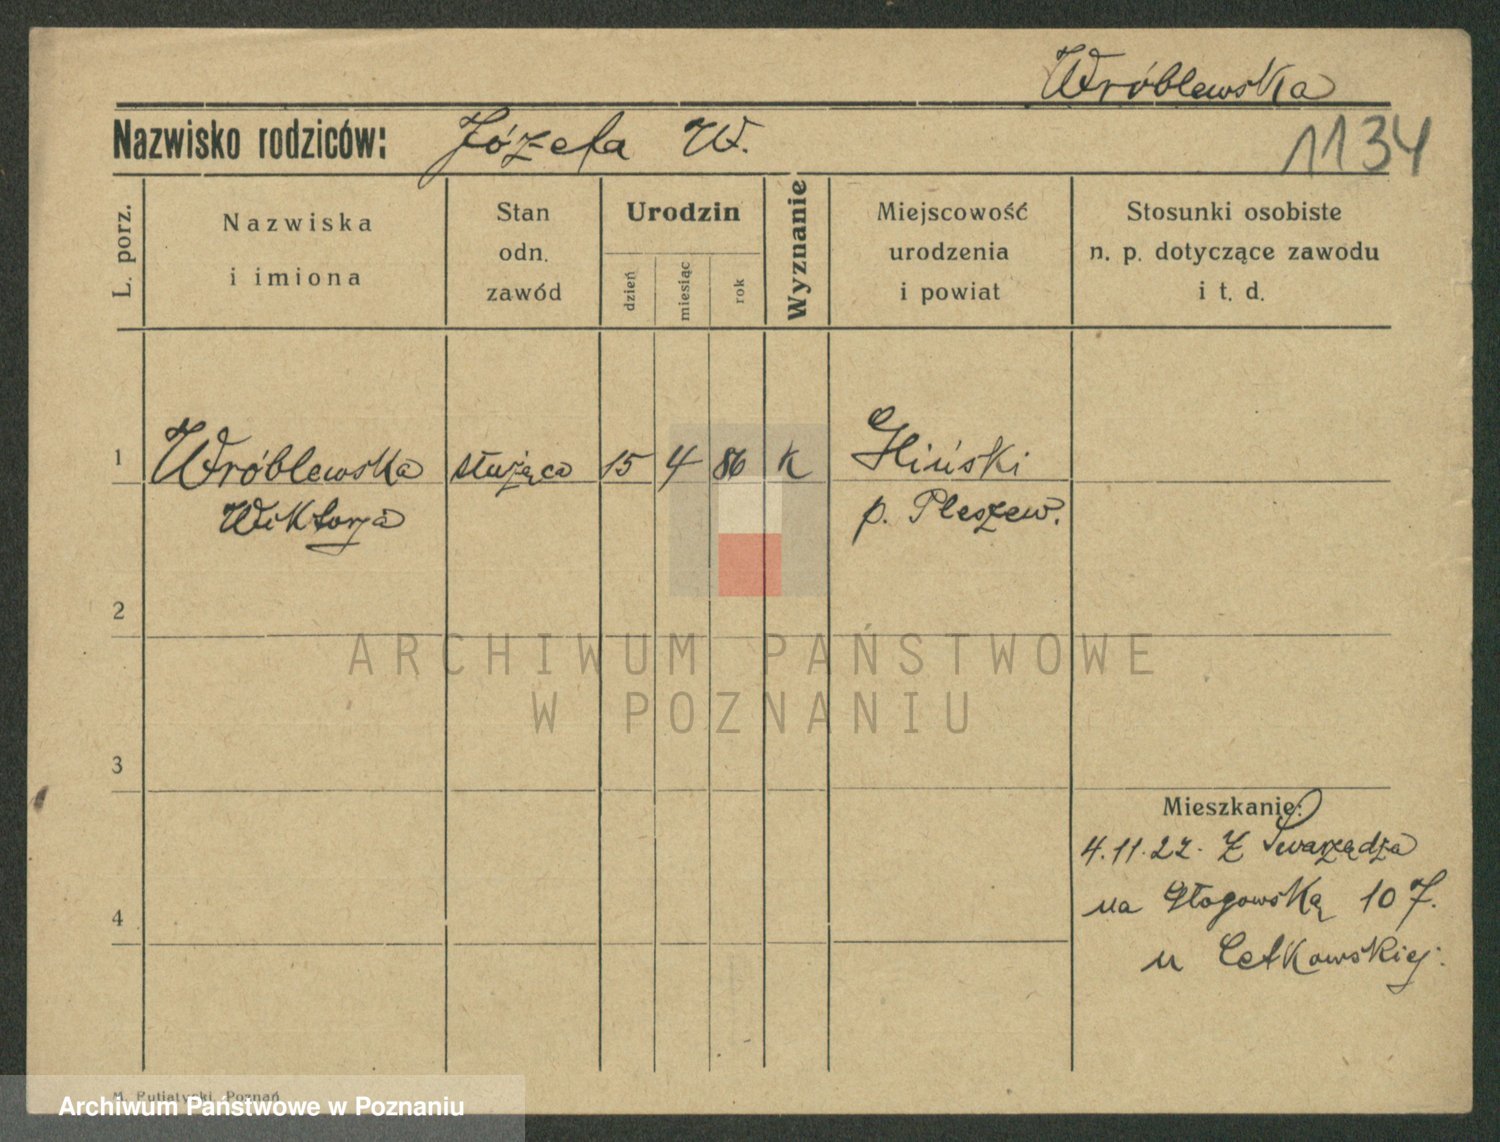 Wróblewska
Nazwisko rodziców: Józefa W.
1134
L. porz.
Nazwiska
i imiona
Stan
odn.
zawód
Urodzin
dzień
miesiąc
rok
Wyznanie
Miejscowość
urodzenia
i powiat
Stosunki osobiste
n. p. dotyczące zawodu
i t. d.
1 Wróblewska służąca 15 4 86 K
Wiktorja p. Pleszew.
2
ARCHIWUM PAŃSTWOWE
W POZNANIU
3
Mieszkanie:
4.11.22. Z Swarzędza
na Głogowską 107.
u
4
M. Putiatycki, Poznań
Archiwum Państwowe w Poznaniu